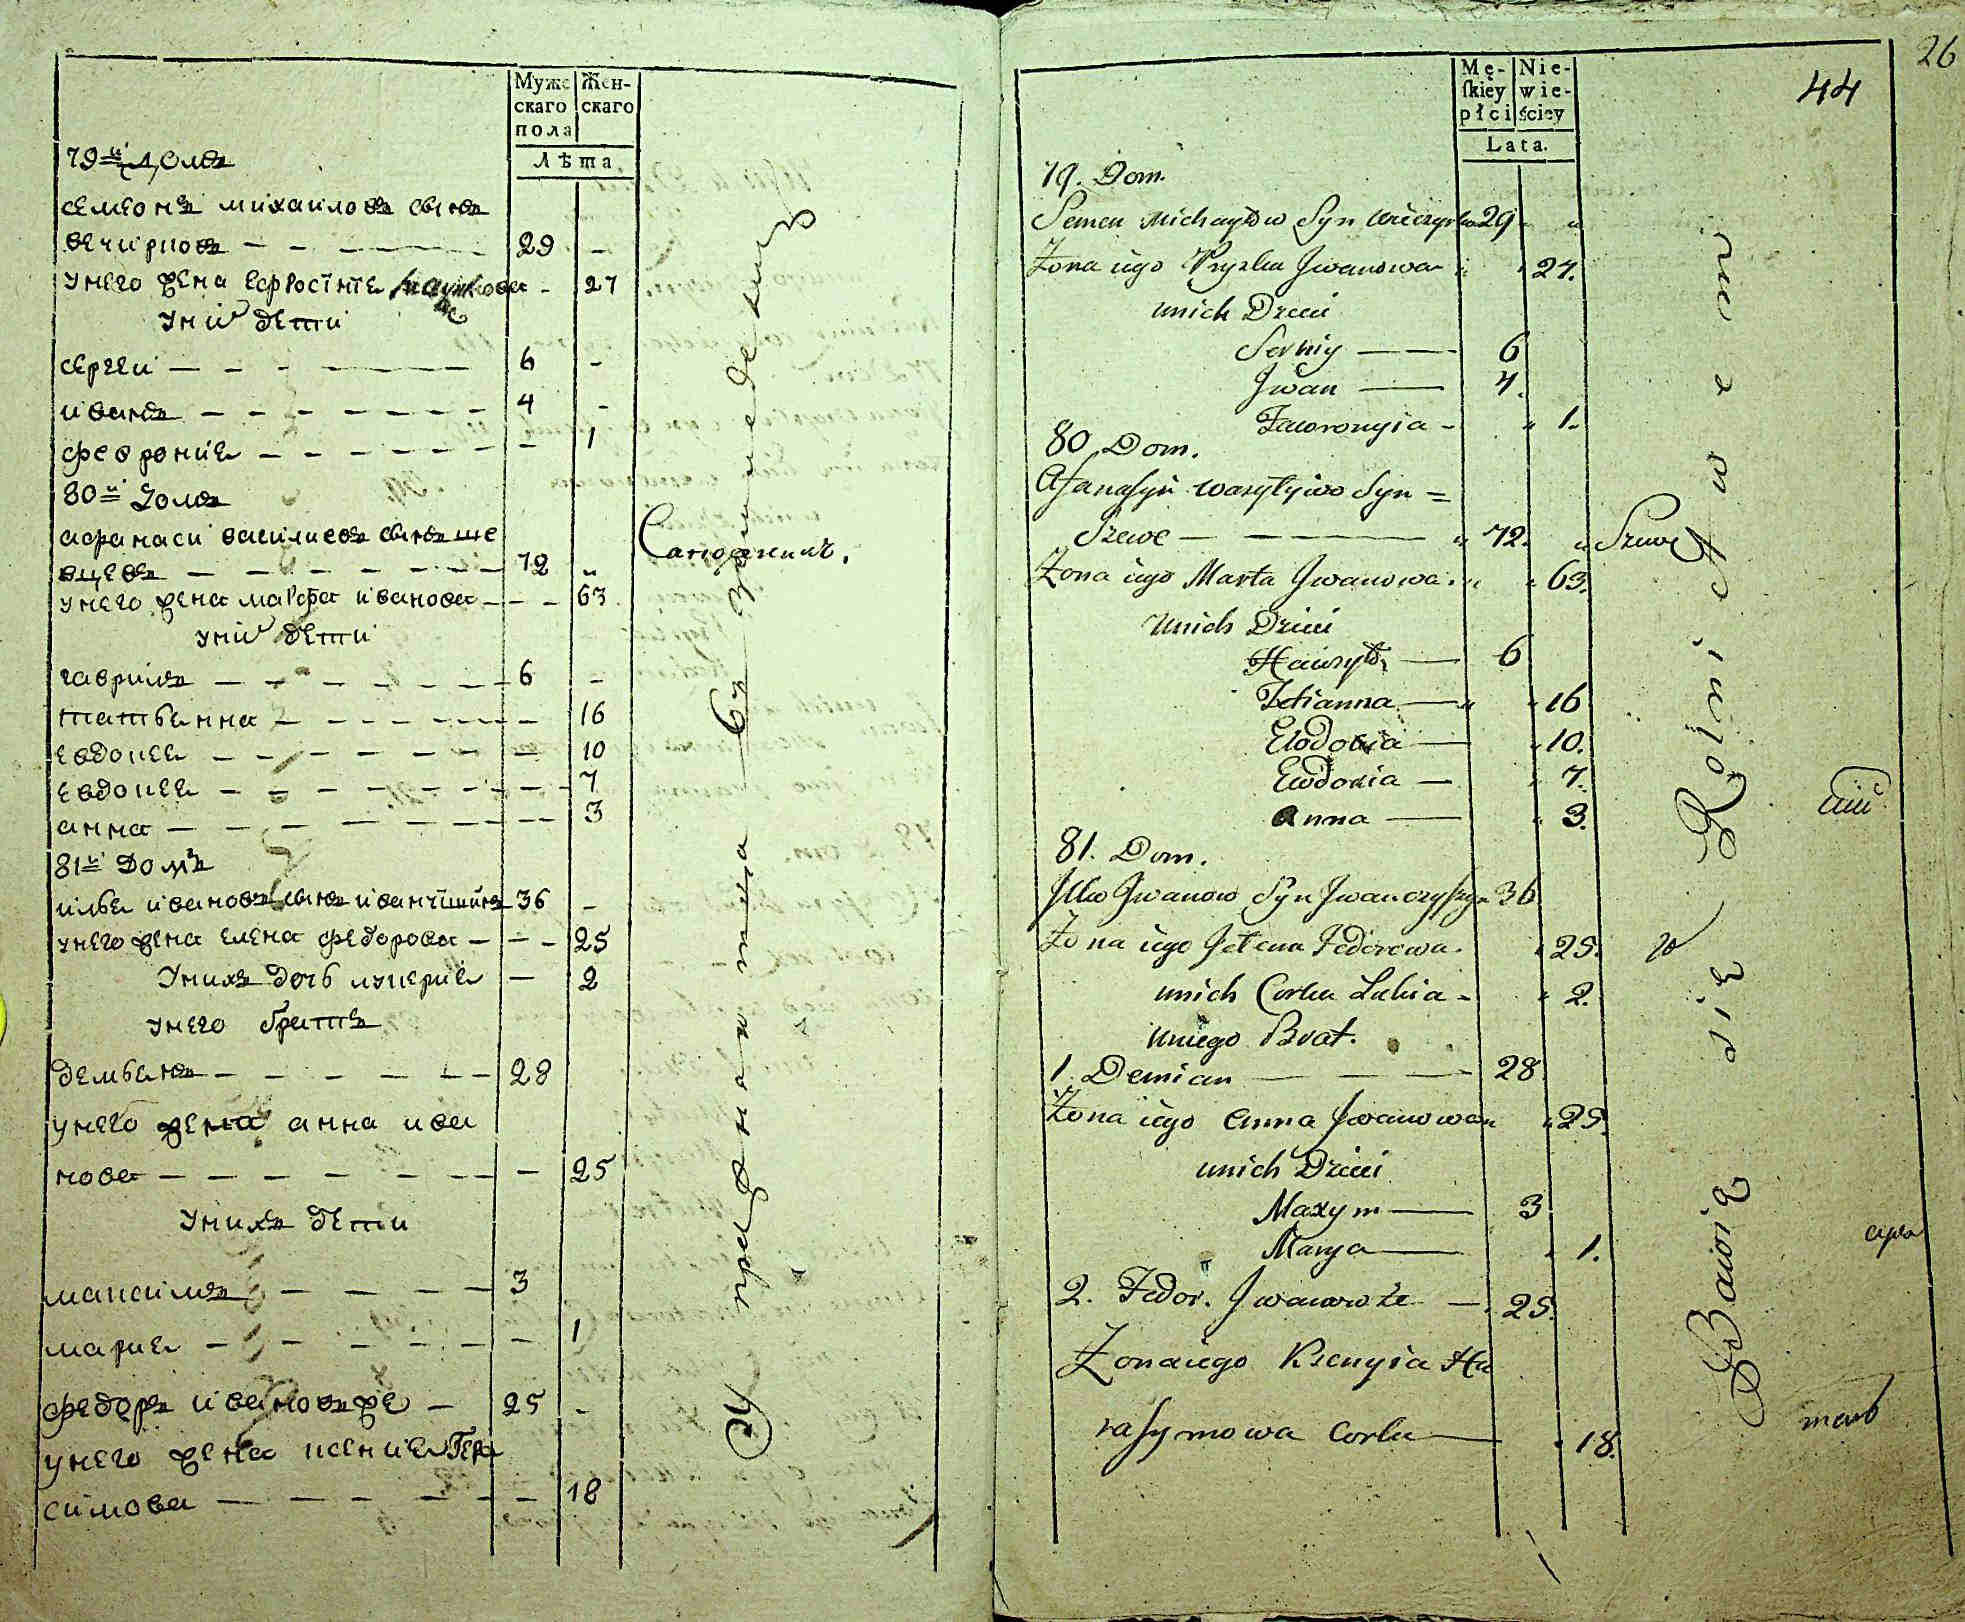 Муже
скаго
пола
Жен-
скаго
Лѣта.
79й домъ
семіонъ михаиловъ сынъ
вечирковъ 29 -
унего жена - 27
уних дети
сергеи 6 -
иванъ 4 -
феврониѧ - 1
80й домъ
афанаси василиевъ сынъ ше
вцевъ 72 "
Сапожникъ.
унего жена марфа иванова - 63
уних дети
гаврилъ 6 -
татьѧнна - 16
евдокеѧ - 10
евдокеѧ - 7
анна - 3
81й домъ
ильѧ ивановъ сынъ иванчишинъ 36 -
унего жена елена федорова - 25
унихъ дочь лукериѧ - 2
унего братъ
демьѧнъ 28
унего жена анна ива
нова - 25
унихъ дети
максимъ 3
мариѧ - 1
федоръ ивановъже 25 -
унего жена ксениѧ Гера
симова - 18
упражнаютца въ земледелии
26
44
Mę-
skiey
płci
Nie-
wie-
ściey
Lata.
79. Dom.
Semen Michayłow Syn 29 "
Żona iego Pryzka Jwanowa " 27.
unich Dzieci
Serhiy 6
Jwan 4.
Fawronyia " 1.
80 Dom.
Afanasyi Wasylyiwo Syn =
Szewc " 72. "
Szewc
Żona iego Marta Jwanowa " 63.
Unich Dzieci
Hawryło 6
Tetianna " 16
Ewdokia " 10.
Ewdokia " 7.
Anna " 3.
81. Dom.
Jlko Jwanow Syn Jwanczyszyn 36
Żona iego Jelena Fedorowa " 25.
unich Corka Lukia " 2.
Uniego Brat.
1. Demian 28
Żona iego Anna Jwanowa " 25.
unich Dzieci
Maxym 3
Marya " 1.
2. Fedor. Jwanow że 25.
Żona iego Ksenyia Ha
rasymowa Corka " 18.
Bawią się w Rolnictwem